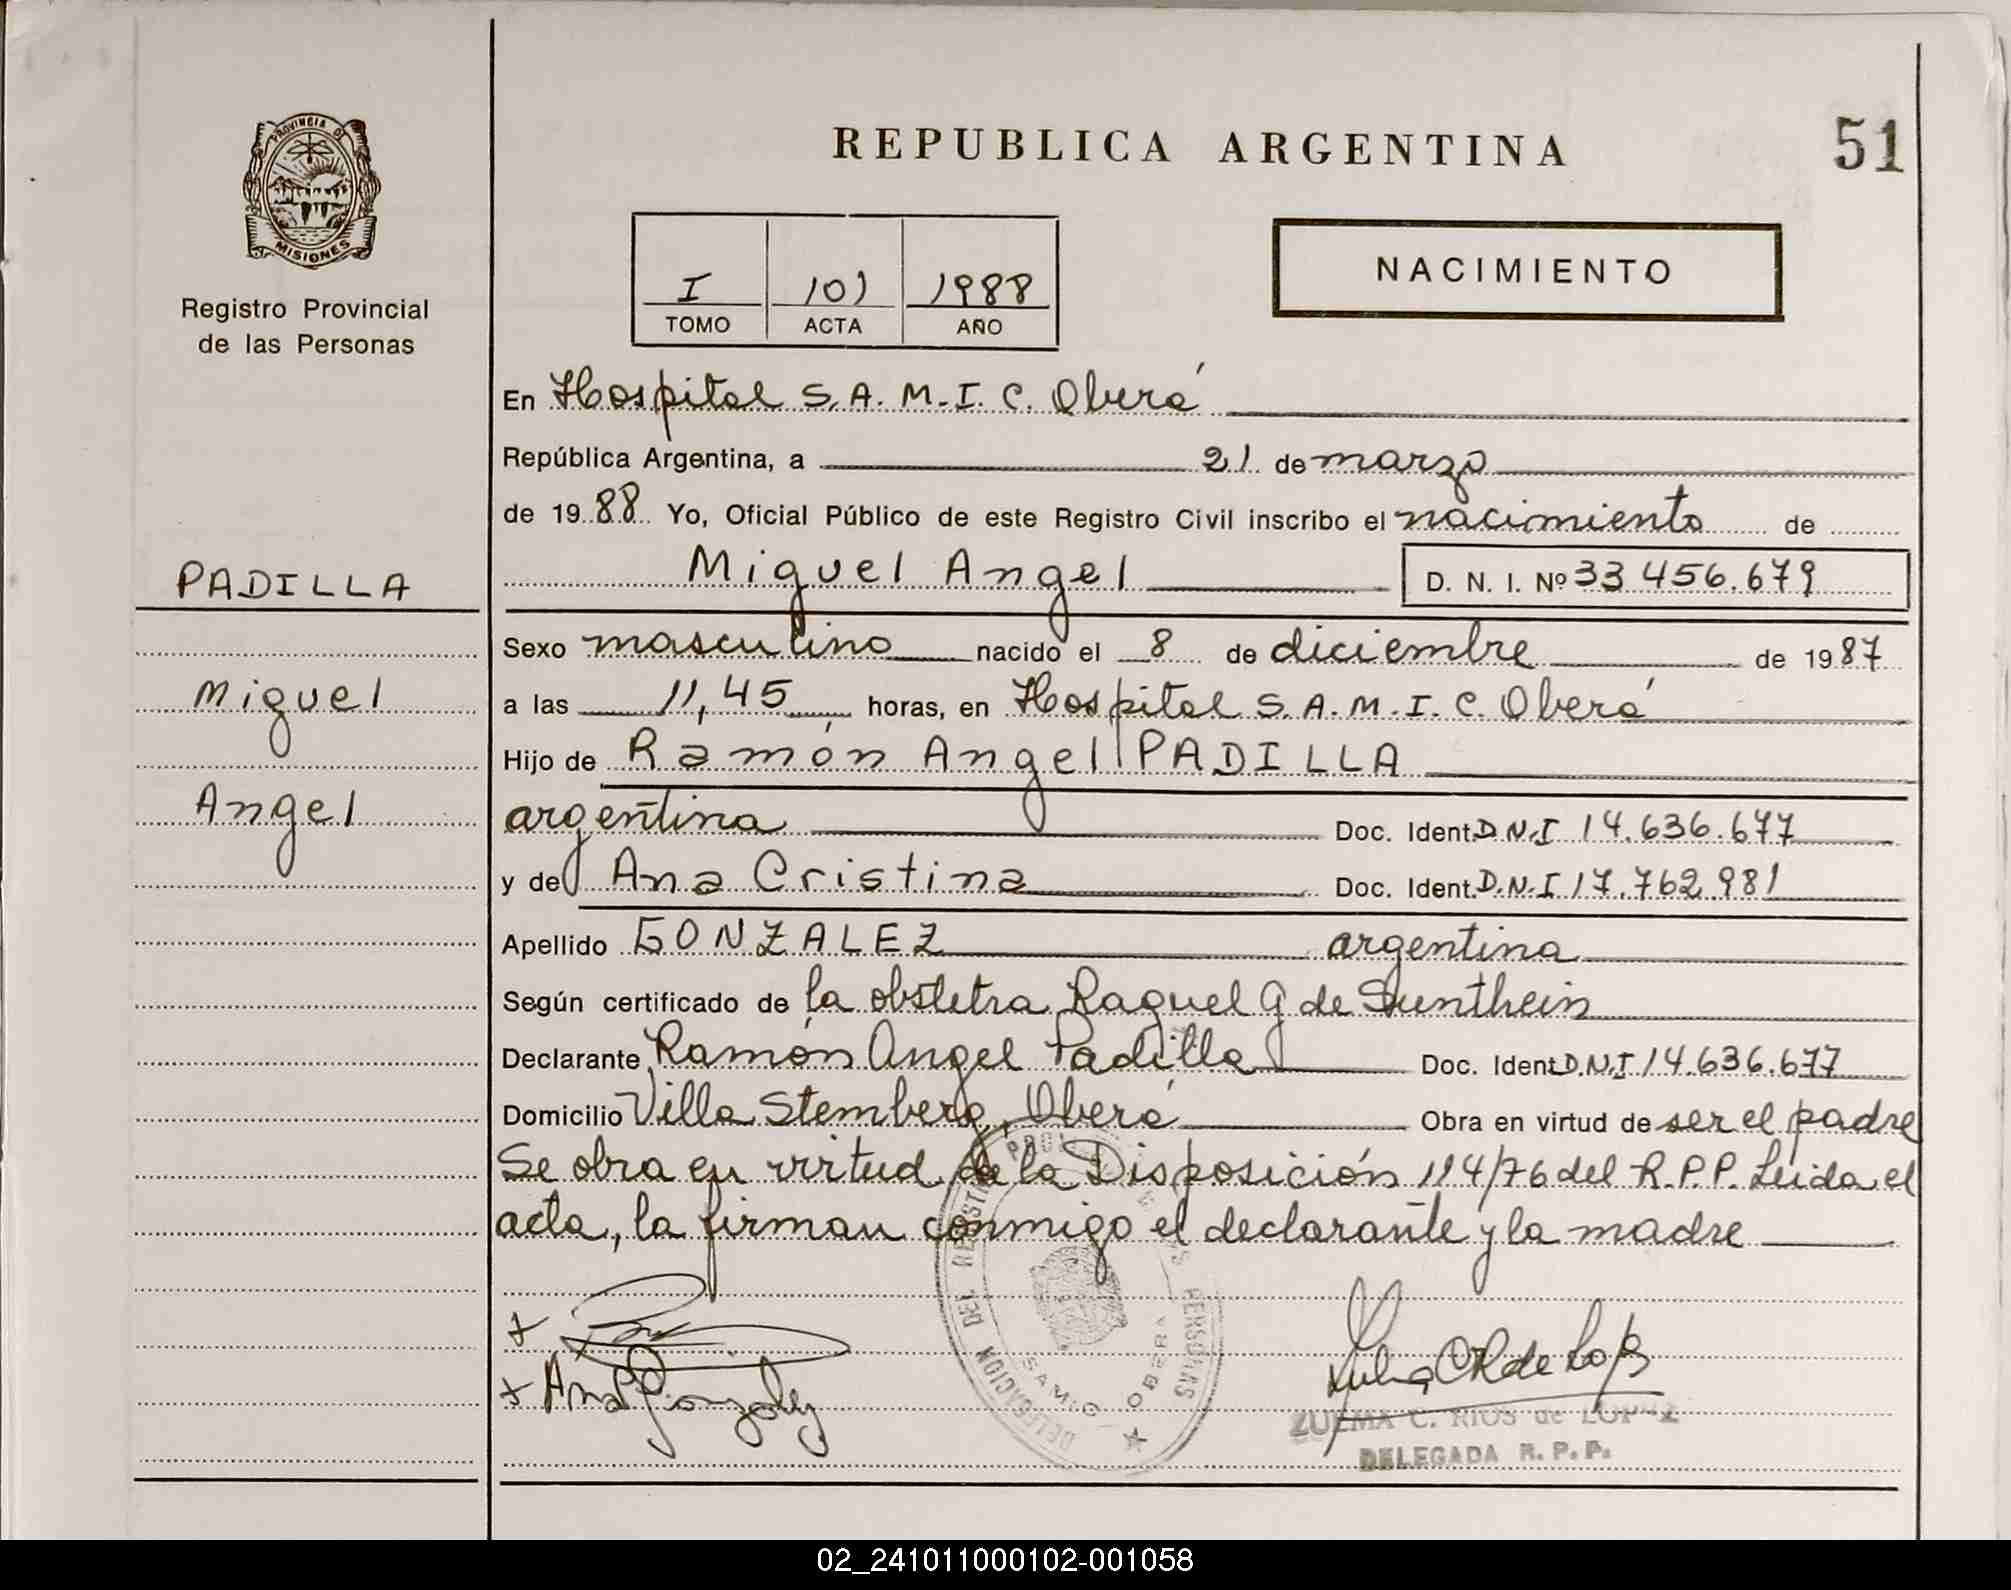 REPUBLICA ARGENTINA
51
PROVINCIA DE
MISIONES
Registro Provincial
de las Personas
I 101 1988
TOMO ACTA AÑO
NACIMIENTO
En Hospital S.A.M.I.C. Oberá
República Argentina, a 21 de marzo
de 1988 Yo, Oficial Público de este Registro Civil inscribo el nacimiento de
PADILLA
Miguel Angel D. N. I. Nº 33.456.679
Sexo masculino nacido el 8 de diciembre de 1987
Miguel
a las 11,45 horas, en Hospital S.A.M.I.C. Oberá
Hijo de Ramón Angel PADILLA
Angel
argentina Doc. Ident. D.N.I 14.636.677
y de Ana Cristina Doc. Ident. D.N.I 17.762.981
Apellido GONZALEZ argentina
Según certificado de la obstetra Raquel G de Sunthein
Declarante Ramón Angel Padilla Doc. Ident. D.N.I 14.636.677
Domicilio Villa Stemberg, Oberá Obra en virtud de ser el padre
Se obra en virtud de la Disposición 114/76 del R.P.P. Leida el
acta, la firman conmigo el declarante y la madre
DELEGACION DEL REGISTRO PROV. PERSONAS
SAMIC OBERA
Ana Gonzalez
ZULMA C. RIOS de LOPEZ
DELEGADA R. P. P.
02_241011000102-001058